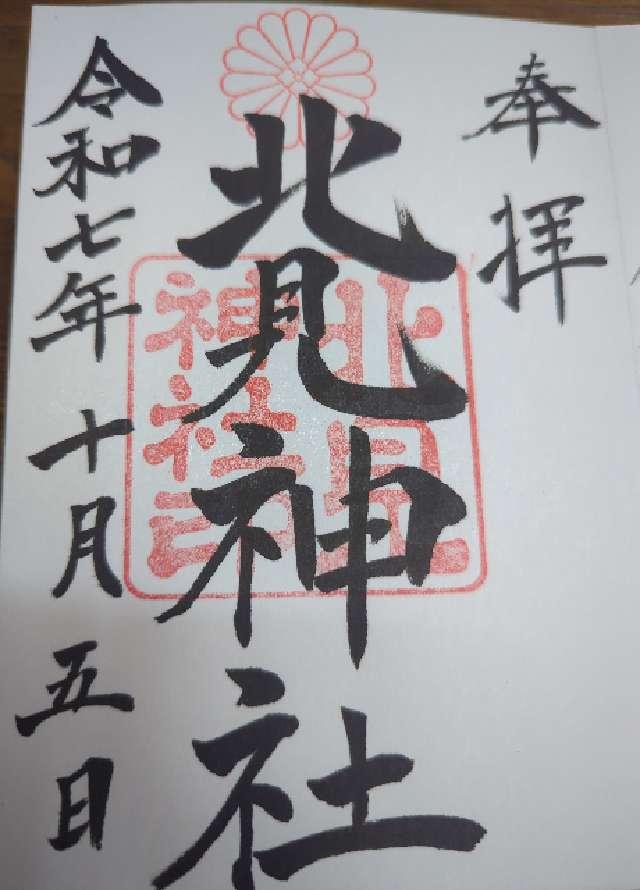 奉拝
北見神社
北見
神社印
令和七年十月五日